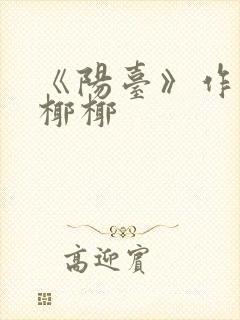 《陽臺》作
椰椰
高迎賓